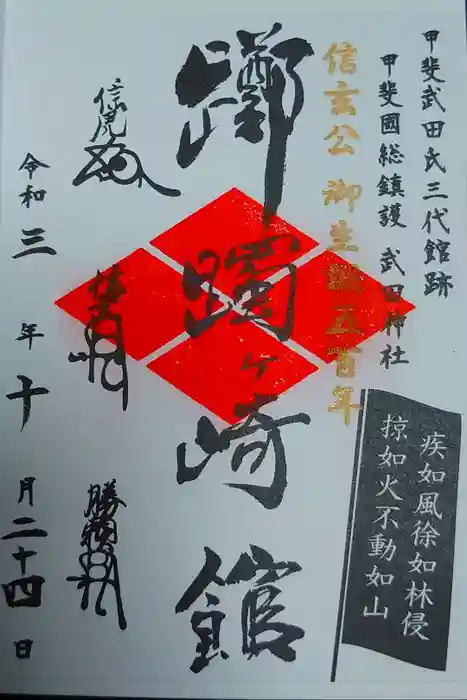 甲斐武田氏三代館跡
甲斐國総鎮護 武田神社
信玄公 御生誕五百年
躑躅ヶ崎館
信虎
信玄
勝頼
疾如風徐如林侵
掠如火不動如山
令和三年十月二十四日